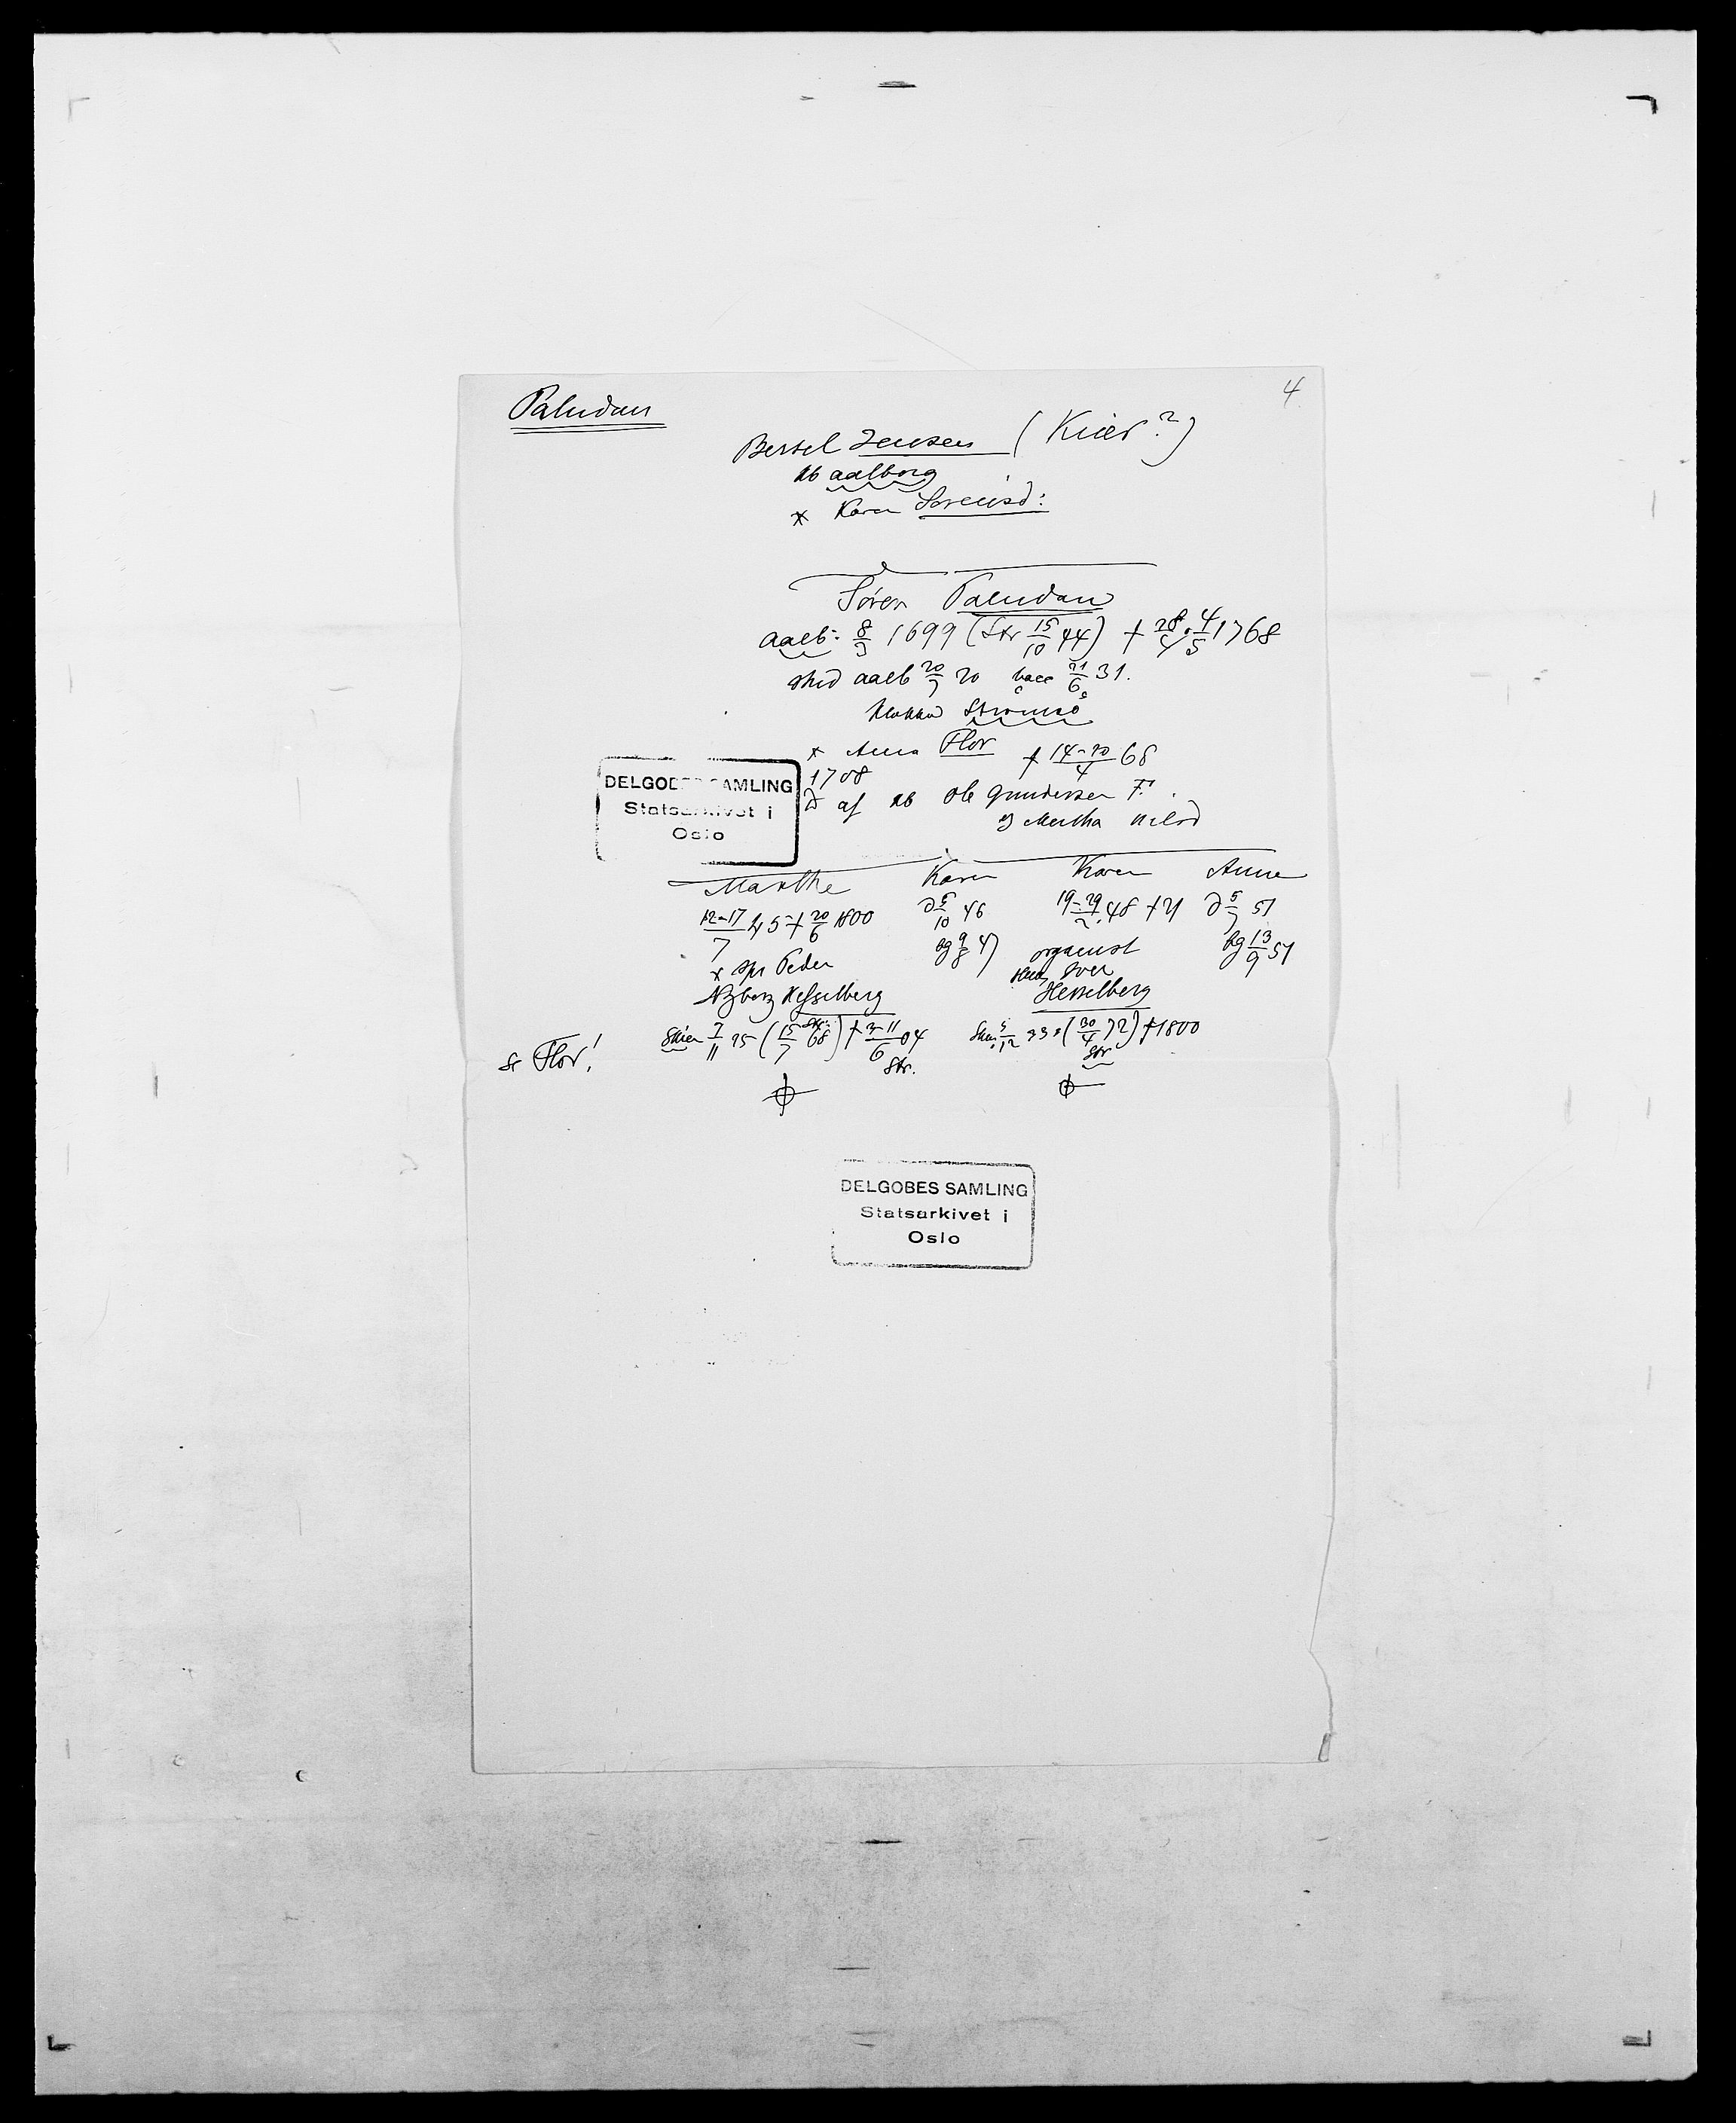 Paludan
4
Bertel Jensen (Kiær?)
kb aalborg
* Karen Sørensd:
Søren Paludan
aalb: 8/9 1699 (Str 15/10 44) † 28/4 · 4/5 1768
stud aalb 20/7 20 bacc 21/6 31.
klokker Strømsø
* Anna Flor † 14-20/4 68
1708
D af kb Ole Gundersen F.
og Martha Nilsd
DELGOBES SAMLING
Statsarkivet i
Oslo
Marthe Karen Karen Anne
12-17/7 45 † 20/6 1800 D 5/10 46 19-29/2 48 † D 5/7 51
bg 9/8 47 organist bg 13/9 51
* spr Peder Iver
Nyborg Hesselberg Hesselberg
Skien 7/11 25 (15/7 Str. 68) † 3-11/6 04 Skien 5/12 33 (30/4 72) † 1800
Str. Str
se Flor!
DELGOBES SAMLING
Statsarkivet i
Oslo